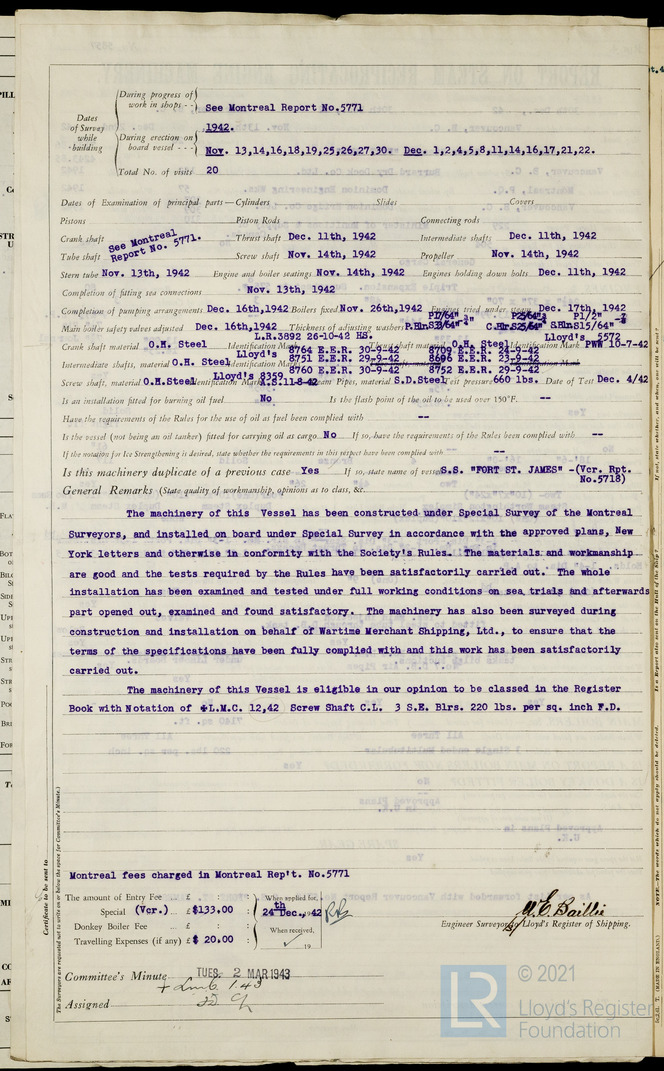 During progress of
work in shops - -
See Montreal Report No.5771
Dates
of Survey
while
building
1942.
During erection on
board vessel - - -
Nov. 13,14,16,18,19,25,26,27,30. Dec. 1,2,4,5,8,11,14,16,17,21,22.
Total No. of visits 20
Dates of Examination of principal parts—Cylinders Slides Covers
Pistons Piston Rods Connecting rods
Crank shaft See Montreal Report No. 5771. Thrust shaft Dec. 11th, 1942 Intermediate shafts Dec. 11th, 1942
Tube shaft Screw shaft Nov. 14th, 1942 Propeller Nov. 14th, 1942
Stern tube Nov. 13th, 1942 Engine and boiler seatings Nov. 14th, 1942 Engines holding down bolts Dec. 11th, 1942
Completion of fitting sea connections Nov. 13th, 1942
Completion of pumping arrangements Dec. 16th,1942 Boilers fixed Nov. 26th,1942 Engines tried under steam Dec. 17th, 1942
Main boiler safety valves adjusted Dec. 16th,1942 Thickness of adjusting washers
L.R.3892 26-10-42 HS.
Crank shaft material O.H. Steel Identification Mark 8764 E.E.R. 30-9-42 Thrust shaft material O.H. Steel Identification Mark Lloyd's 5572 PWH 10-7-42
Intermediate shafts, material O.H. Steel Identification Marks Lloyd's 8751 E.E.R. 29-9-42
8760 E.E.R. 30-9-42 8752 E.E.R. 29-9-42
Screw shaft, material O.H.Steel Identification Mark Lloyd's 8359 Steam Pipes, material S.D.Steel Test pressure 660 lbs. Date of Test Dec. 4/42
Is an installation fitted for burning oil fuel No Is the flash point of the oil to be used over 150°F. --
Have the requirements of the Rules for the use of oil as fuel been complied with --
Is the vessel (not being an oil tanker) fitted for carrying oil as cargo No If so, have the requirements of the Rules been complied with --
If the notation for Ice Strengthening is desired, state whether the requirements in this respect have been complied with --
Is this machinery duplicate of a previous case Yes If so, state name of vessel S.S. "FORT ST. JAMES" -(Vcr. Rpt. No.5718)
General Remarks (State quality of workmanship, opinions as to class, &c.
The machinery of this Vessel has been constructed under Special Survey of the Montreal
Surveyors, and installed on board under Special Survey in accordance with the approved plans, New
York letters and otherwise in conformity with the Society's Rules. The materials and workmanship
are good and the tests required by the Rules have been satisfactorily carried out. The whole
installation has been examined and tested under full working conditions on sea trials and afterwards
part opened out, examined and found satisfactory. The machinery has also been surveyed during
construction and installation on behalf of Wartime Merchant Shipping, Ltd., to ensure that the
terms of the specifications have been fully complied with and this work has been satisfactorily
carried out.
The machinery of this Vessel is eligible in our opinion to be classed in the Register
Book with Notation of +L.M.C. 12,42 Screw Shaft C.L. 3 S.E. Blrs. 220 lbs. per sq. inch F.D.
Montreal fees charged in Montreal Rep't. No.5771
The amount of Entry Fee £ : :
Special (Vcr.) £ $133.00 :
Donkey Boiler Fee £ : :
Travelling Expenses (if any) £ $ 20.00 :
When applied for,
24th Dec., 1942
When received,
19
W.E. Baillie
Engineer Surveyor to Lloyd's Register of Shipping.
Committee's Minute TUES. 2 MAR 1943
+ Lmc 1.43
Assigned
Certificate to be sent to
The Surveyors are requested not to write on or below the space for Committee's Minute.
LR
© 2021
Lloyd's Register
Foundation